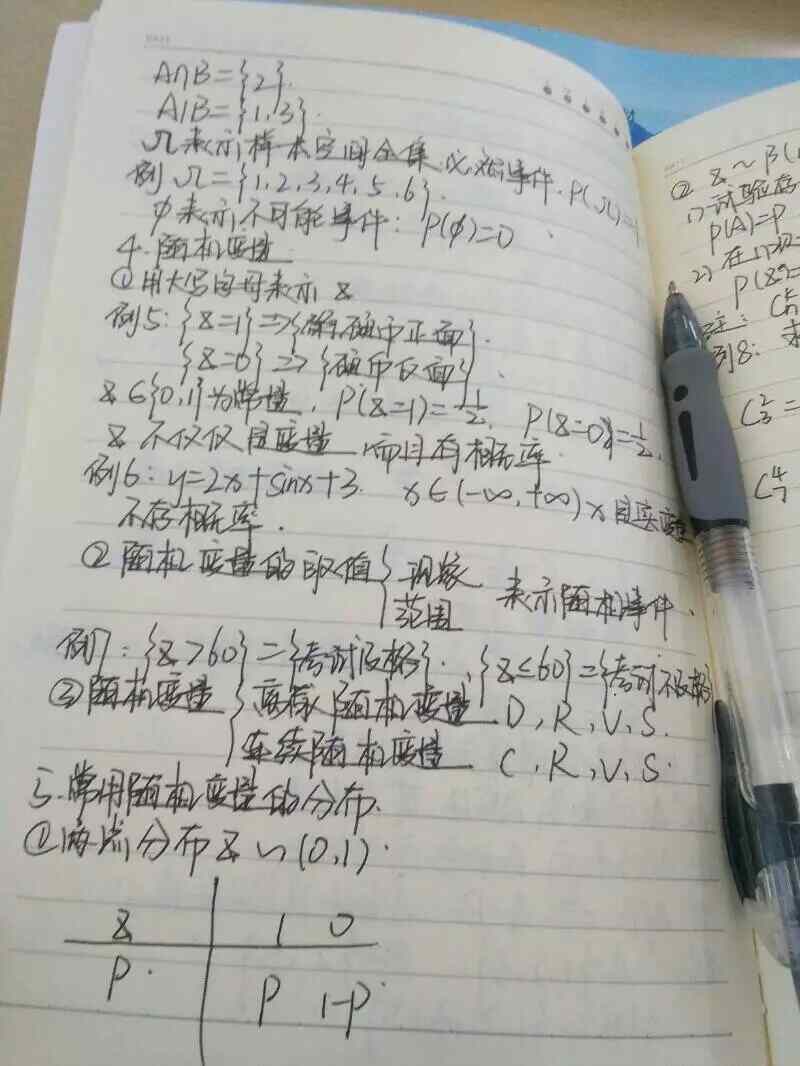 A∩B={2}.
A\B={1,3}.
Ω表示样本空间全集,必然事件.P(Ω)=1
例Ω={1,2,3,4,5,6}.
φ表示不可能事件:P(φ)=0
4.随机变量
①用大写字母表示ξ
例5:{ξ=1}=>{硬币正面}.
{ξ=0}=>{硬币反面}.
ξ∈{0,1}为常量,P(ξ=1)=1/2,P(ξ=0)=1/2,
ξ不仅仅是变量,而且有概率.
例6:y=2x+sinx+3. x∈(-∞,+∞)x是实变量
不存概率.
②随机变量的取值{现象
范围 表示随机事件.
例7:{ξ>60}={考试及格}.{ξ≤60}={考试不及格}
③随机变量{离散随机变量 D,R,V,S.
连续随机变量 C,R,V,S.
5.常用随机变量的分布.
①两点分布ξ~(0,1).
ξ 1 0
P. P 1-P.
② ξ~B(
1)试验存
P(A)=P
2)在
P(ξ=
例8:求
C₃²=
C₇⁴